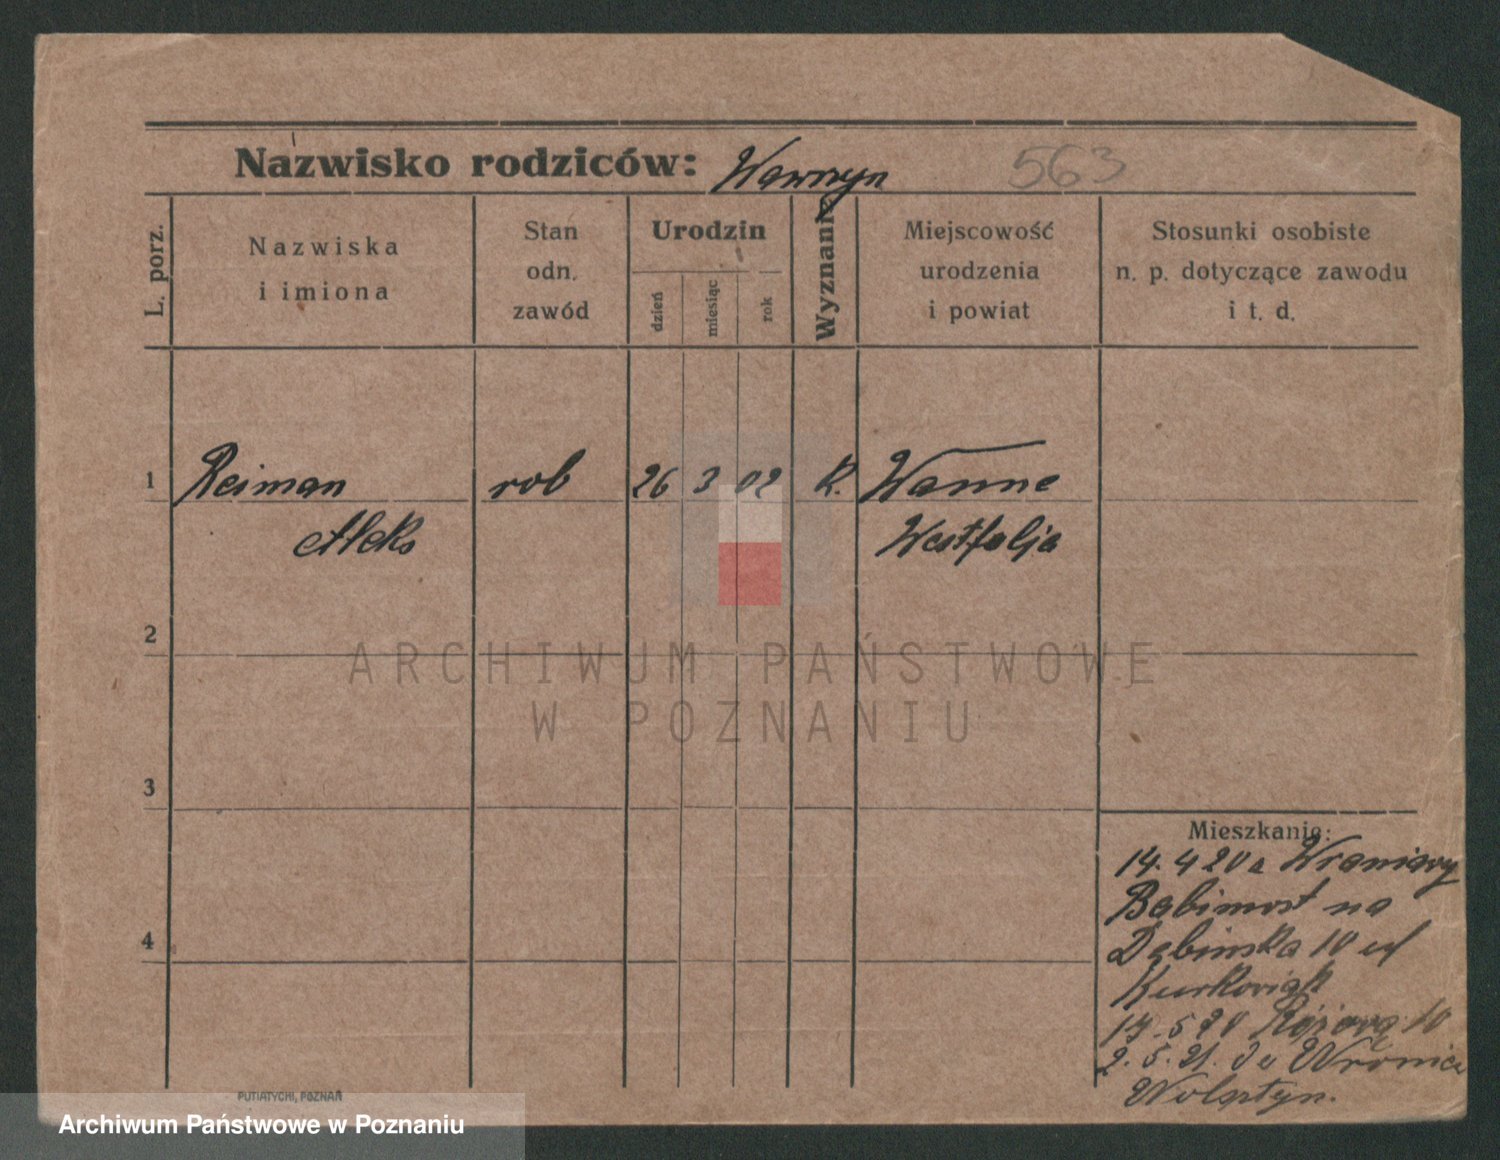 Nazwisko rodziców: Wawrzyn 563
L. porz.
Nazwiska
i imiona
Stan
odn.
zawód
Urodzin
dzień
miesiąc
rok
Wyznanie
Miejscowość
urodzenia
i powiat
Stosunki osobiste
n. p. dotyczące zawodu
i t. d.
1 Reiman rob 26 3 02 K. Wanne
Aleks Westfalja
2
3
4
ARCHIWUM PAŃSTWOWE
W POZNANIU
Mieszkanie:
14. 4 20 z
Babimost na
Dębinska 10 od
Kurkowiak
17. 5 20 Różową 10
2. 5. 21. do
Wolsztyn.
PUTIATYCHI, POZNAŃ
Archiwum Państwowe w Poznaniu